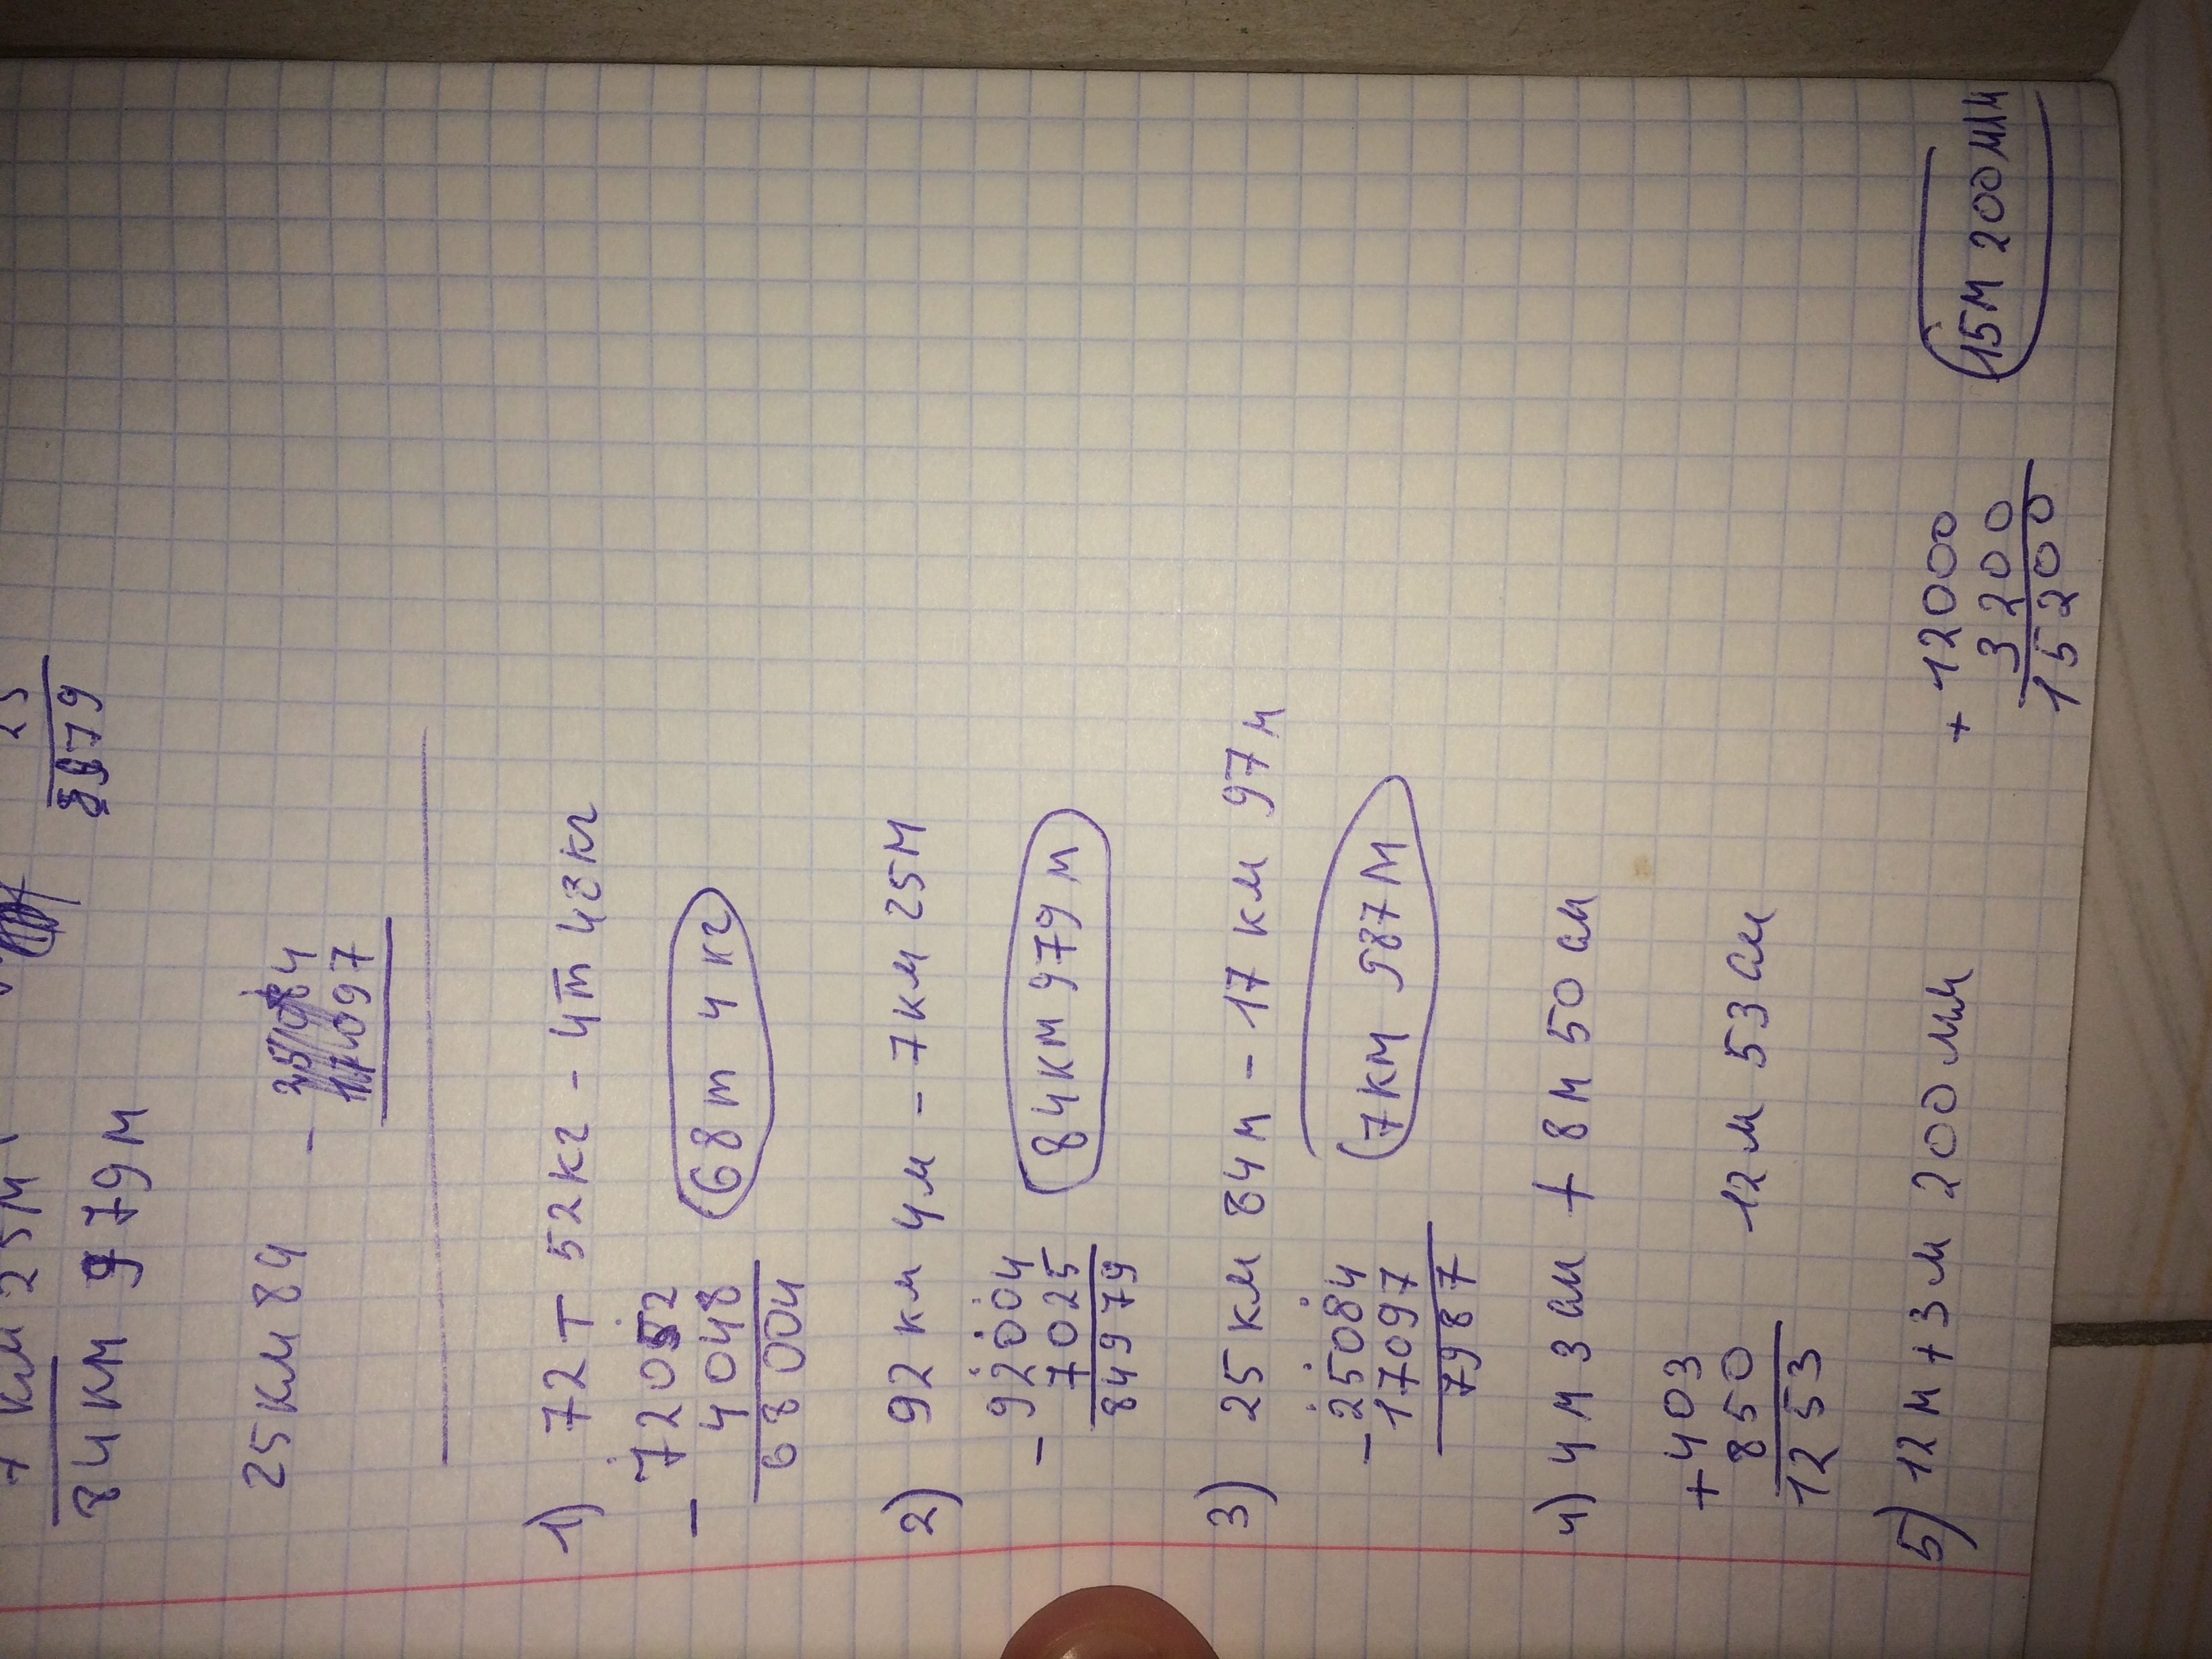 7 км 25м
25
84км 979м
8979
25км 84
- 35084
17097
1) 72т 52кг - 4т 48кг
- 72052
4048
68004
68т 4кг
2) 92 км 4м - 7км 25м
- 92004
7025
84979
84км 979м
3) 25 км 84м - 17 км 97м
- 25084
17097
7987
7км 987м
4) 4м 3см + 8м 50см
+ 403
850
1253
12м 53см
5) 12м + 3м 200мм
+ 12000
3200
15200
15м 200мм